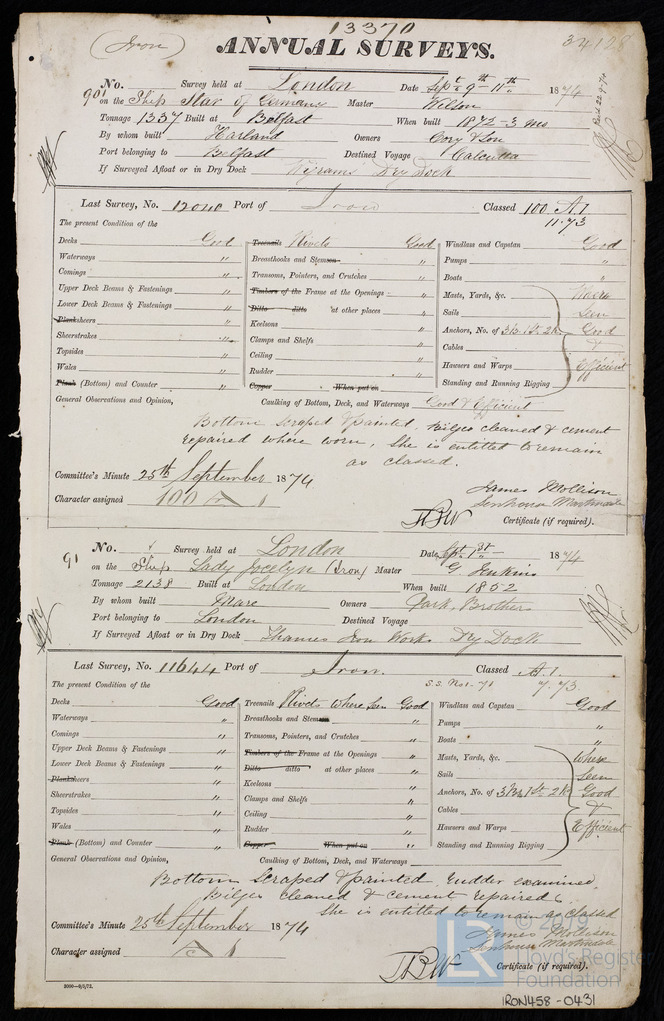 13370
(Iron)
34128
ANNUAL SURVEYS.
No. 90 Survey held at London Date Sept. 9th-11th 1874
on the Ship Star of Germany Master Wilson
Tonnage 1337 Built at Belfast When built 1872-3 mo
By whom built Harland Owners Cory & Son
Port belonging to Belfast Destined Voyage Calcutta
If Surveyed Afloat or in Dry Dock Dry Dock
Last Survey, No. 12040 Port of Iron Classed 100 A.1
11.73
The present Condition of the
Decks Good Treenails Rivets Good Windlass and Capstan Good
Waterways " Breasthooks and Stemson " Pumps "
Comings " Transoms, Pointers, and Crutches " Boats "
Upper Deck Beams & Fastenings " Timbers of the Frame at the Openings " Masts, Yards, &c. Where
Lower Deck Beams & Fastenings " Ditto ditto at other places " Sails Seen
Planksheers " Keelsons " Anchors, No. of 3B 1St. 2K Good
Sheerstrakes " Clamps and Shelfs " Cables &
Topsides " Ceiling " Hawsers and Warps Efficient
Wales " Rudder " Standing and Running Rigging
Plank (Bottom) and Counter " Copper When put on
General Observations and Opinion, Caulking of Bottom, Deck, and Waterways Good & Efficient
Bottom scraped & painted. Bilges cleaned & cement
repaired where worn, She is entitled to remain
as classed.
Committee's Minute 25th September 1874
James Mollison
Character assigned 100 A 1
Senhouse Martindale
Certificate (if required).
91 No. Survey held at London Date Sept. 1st 1874
on the Ship Lady Jocelyn (Iron) Master G Jenkins
Tonnage 2138 Built at London When built 1852
By whom built Mare Owners Park, Brothers
Port belonging to London Destined Voyage
If Surveyed Afloat or in Dry Dock Thames Iron Works Dry Dock
Last Survey, No. 11644 Port of Iron. Classed A.1
S.S. No 1-71 7.73
The present Condition of the
Decks Good Treenails Rivets where seen Good Windlass and Capstan Good
Waterways " Breasthooks and Stemson " Pumps "
Comings " Transoms, Pointers, and Crutches " Boats "
Upper Deck Beams & Fastenings " Timbers of the Frame at the Openings " Masts, Yards, &c. Where
Lower Deck Beams & Fastenings " Ditto ditto at other places " Sails Seen
Planksheers " Keelsons " Anchors, No. of 3B 1St. 2K Good
Sheerstrakes " Clamps and Shelfs " Cables &
Topsides " Ceiling " Hawsers and Warps Efficient
Wales " Rudder " Standing and Running Rigging
Plank (Bottom) and Counter " Copper When put on
General Observations and Opinion, Caulking of Bottom, Deck, and Waterways
Bottom scraped & painted, rudder examined,
Bilges cleaned & cement repaired &
She is entitled to remain as classed
Committee's Minute 25th September 1874
James Mollison
Senhouse Martindale
Character assigned A 1
Certificate (if required).
© 2019
LR Lloyd's Register
Foundation
IRON458-0431